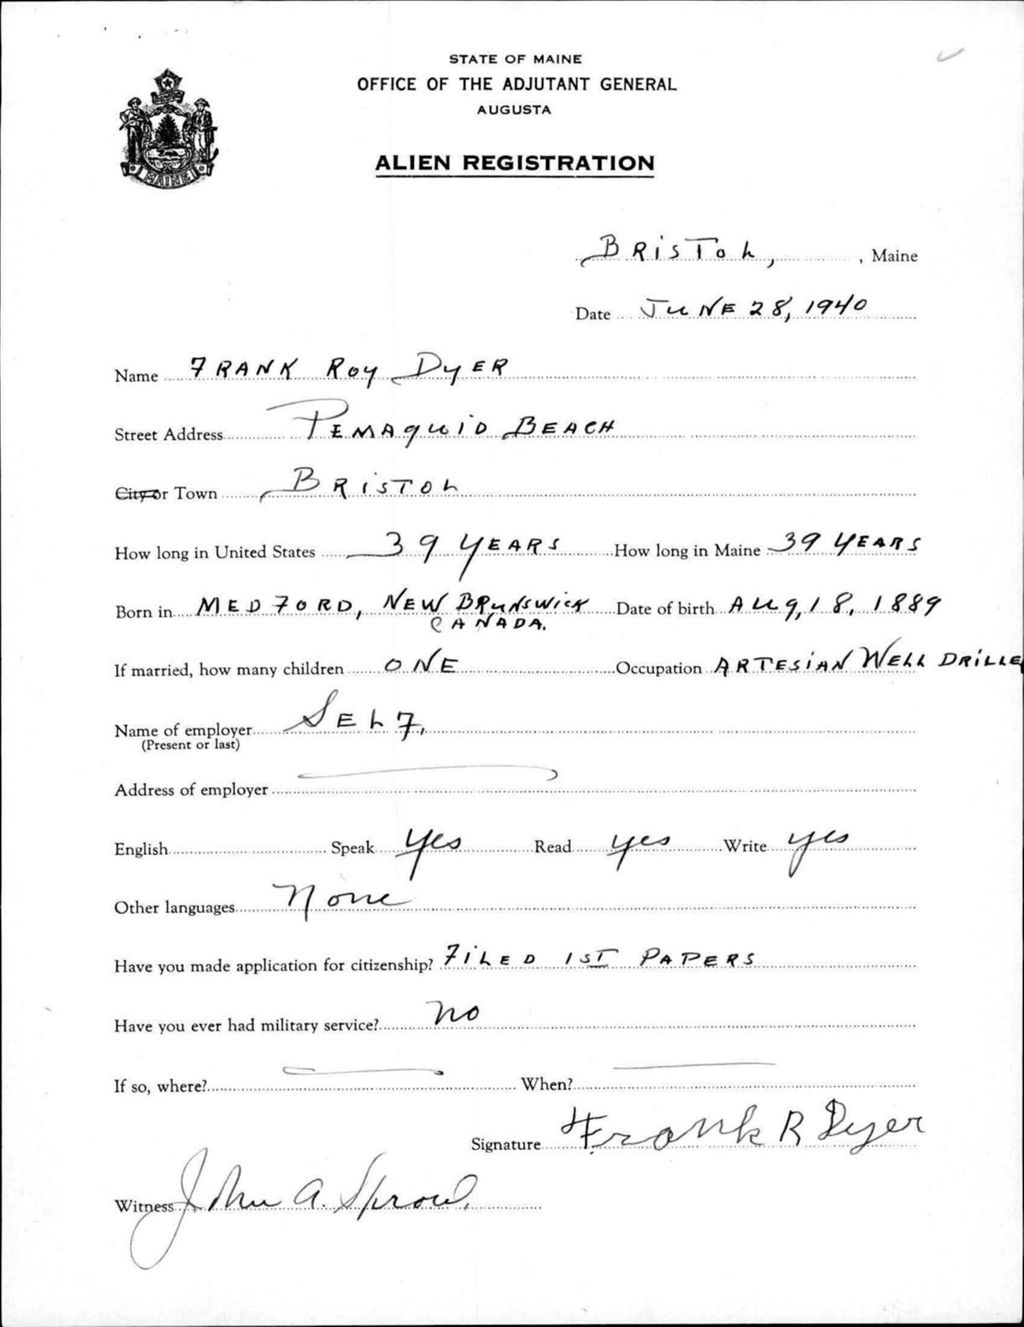 STATE OF MAINE
OFFICE OF THE ADJUTANT GENERAL
AUGUSTA
ALIEN REGISTRATION
MAINE
BRISTOL, , Maine
Date JUNE 28, 1940
Name FRANK ROY DYER
Street Address PEMAQUID BEACH
City or Town BRISTOL
How long in United States 39 YEARS How long in Maine 39 YEARS
Born in MEDFORD, NEW BRUNSWICK Date of birth AUG, 18, 1889
CANADA.
If married, how many children ONE Occupation ARTESIAN WELL DRILLE
Name of employer SELF.
(Present or last)
Address of employer
English Speak yes Read yes Write yes
Other languages None
Have you made application for citizenship? FILED 1ST PAPERS
Have you ever had military service? No
If so, where? When?
Signature Frank R Dyer
Witness John A. Sproul.